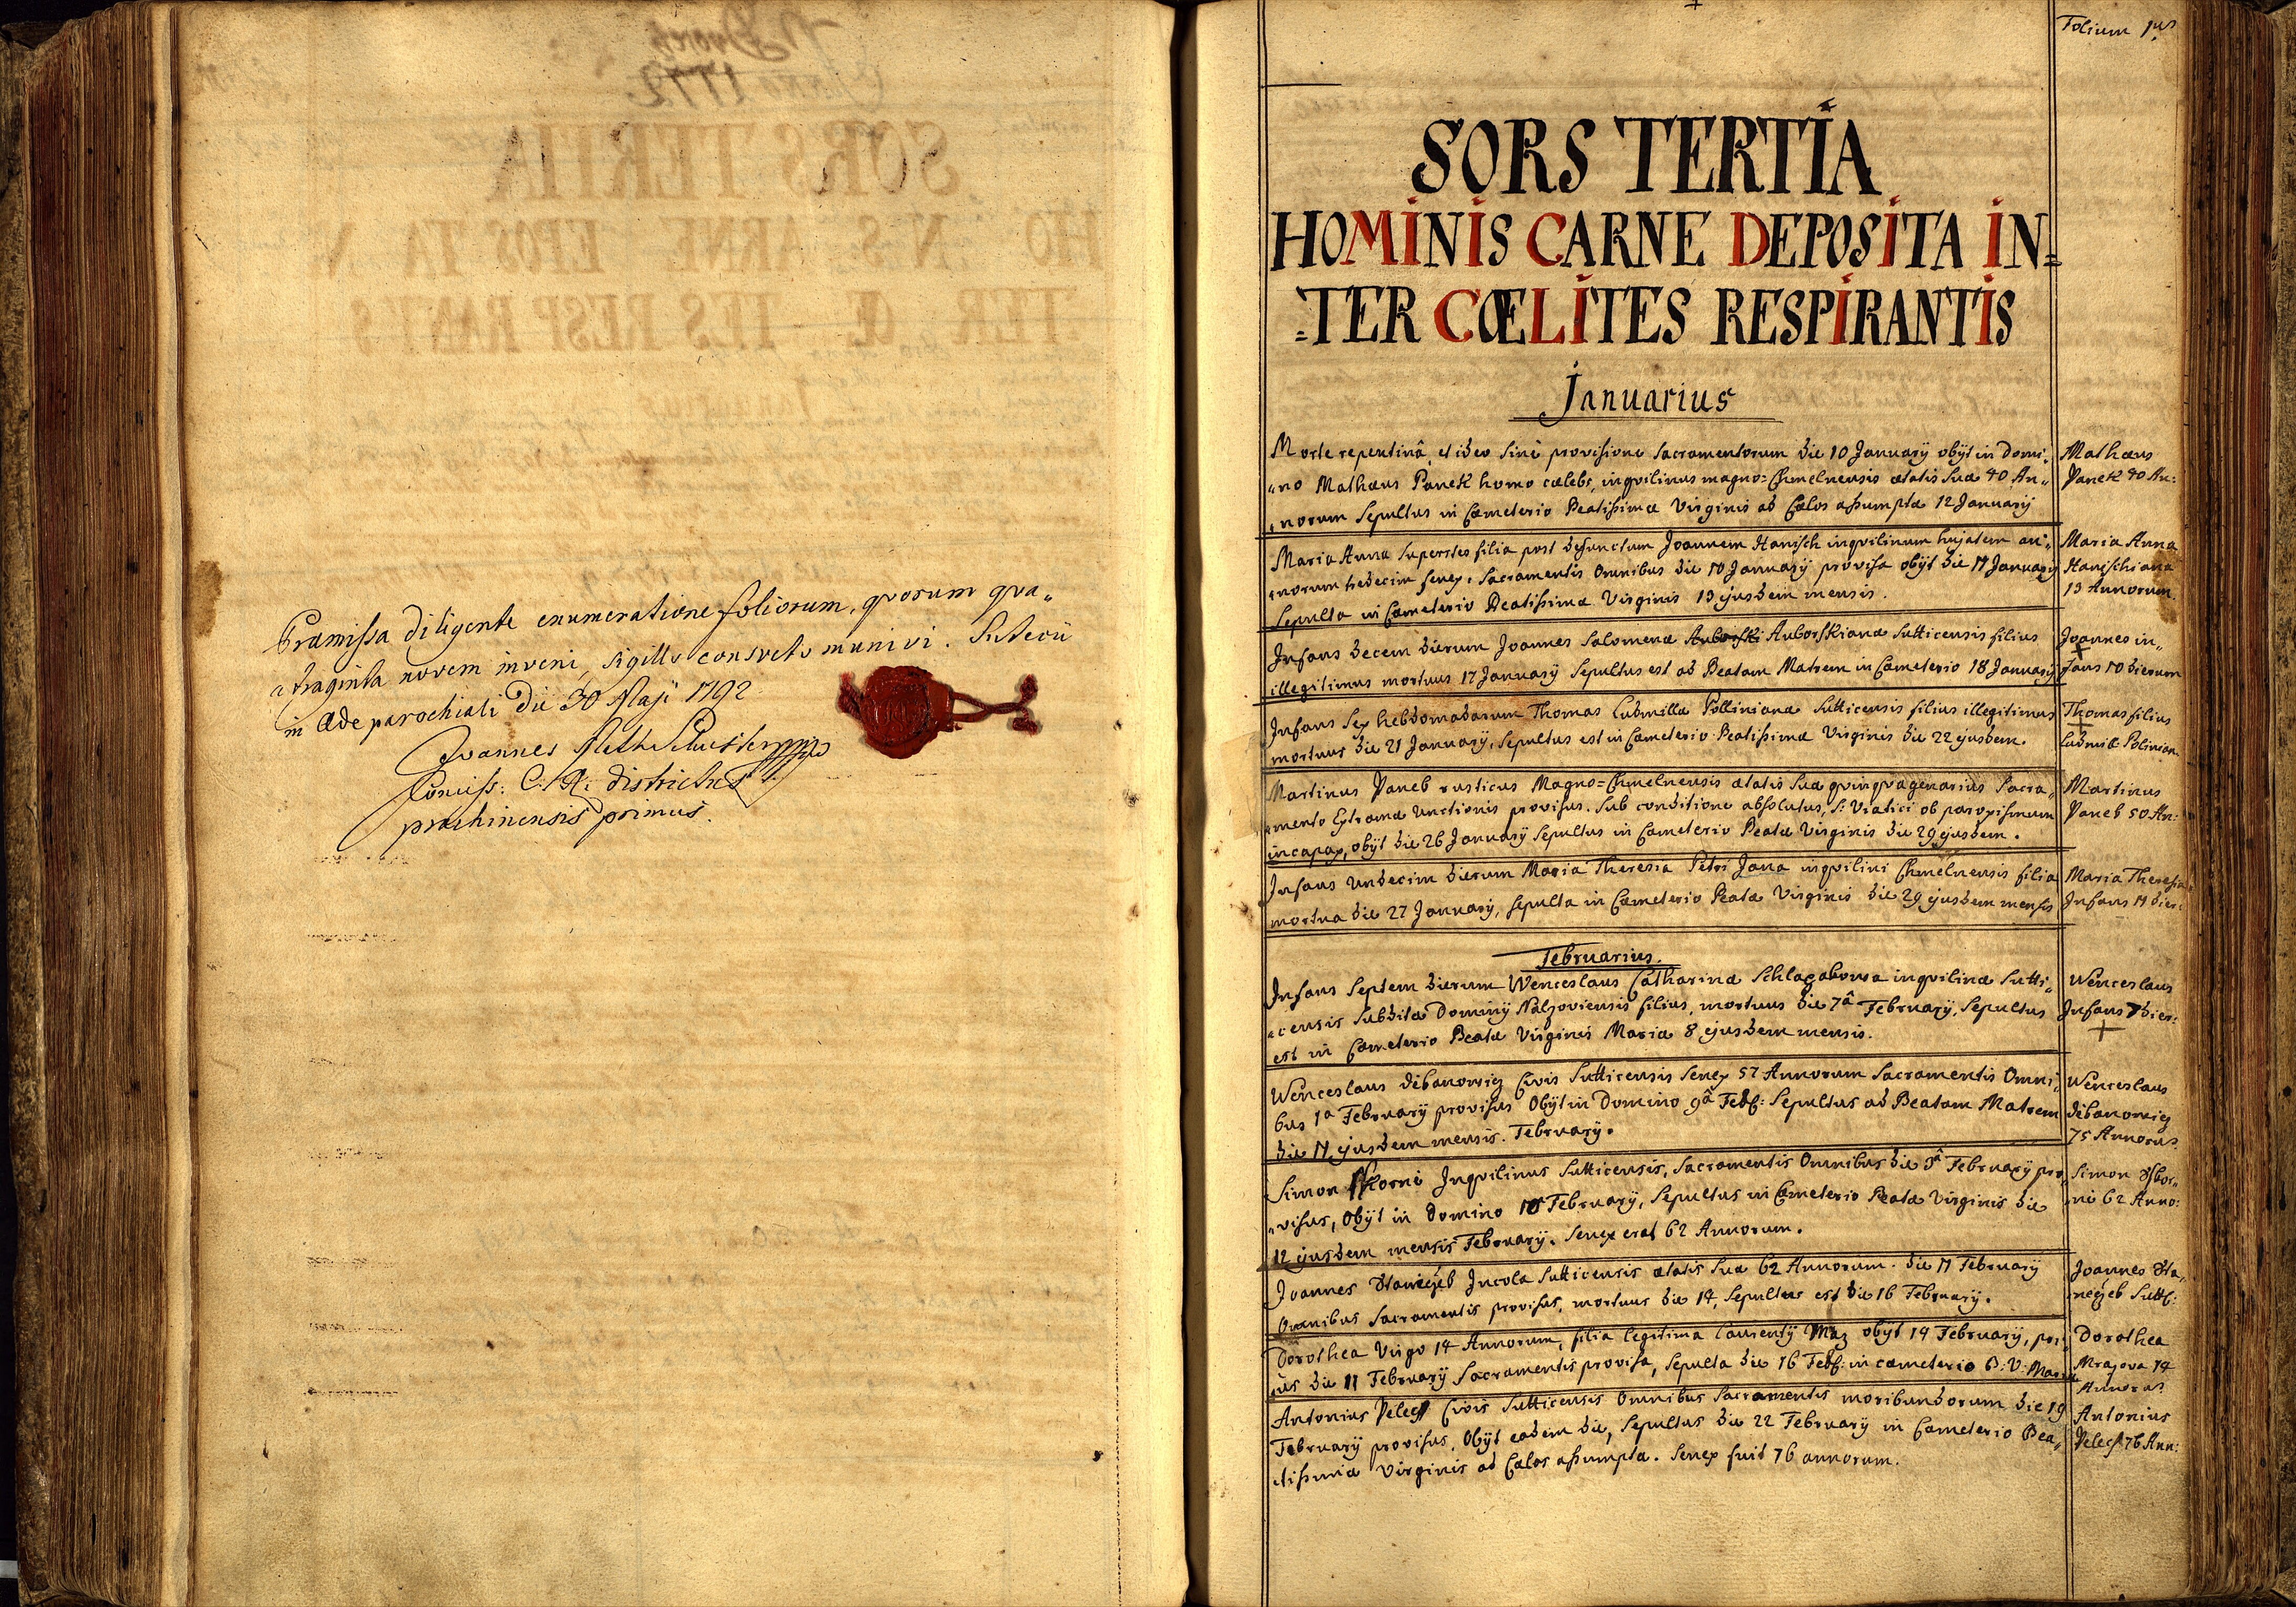 Præmissa diligente enumeratione foliorum, qvorum qva„
„traginta novem inveni, sigillo consveto munivi. Suticii
in Æde parochiali Die 30 Maji 1792
Joannes
Comiss: C: R: districtus
prachinensis primus.
Folium 1us
SORS TERTIA
HOMINIS CARNE DEPOSITA IN=
=TER CŒLITES RESPIRANTIS
Januarius
Morte repentinâ, et ideo sinè provisione Sacramentorum die 10 Januarÿ obÿt in Domi„
„no Mathæus Panek homo cælebs, inqvilinus magno=Chmelnensis ætatis suæ 40 An„
„norum Sepultus in Cæmeterio Beatissimæ Virginis ad Cælos assumptæ 12 Januarÿ
Mathæus
Panek 40 An:
Maria Anna superstes filia post defunctum Joannem Hanisch inqvilinum hujatem an„
„norum tredecim senex: Sacramentis Omnibus die 10 Januarÿ provisa obÿt die 11 Januarÿ
Sepulta in Cæmeterio Beatissimæ Virginis 13 ejusdem mensis.
Maria Anna
Hanischiana
13 Annorum.
Infans decem dierum Joannes Salomenæ Auborski Auborskianæ Sutticensis filius
illegitimus mortuus 17 Januarÿ Sepultus est ad Beatam Matrem in Cæmeterio 18 Januarÿ
Joannes in„
fans 10 dierum
Infans Sex hebdomadarum Thomas Ludmillæ Pollinianæ Sutticensis filius illegitimus
mortuus die 21 Januarÿ, Sepultus est in Cæmeterio Beatissimæ Virginis die 22 ejusdem.
Thomas filius
Ludmill Polinian
Martinus Vaneb rusticus Magno=Chmelnensis ætatis suæ qvinqvagenarius Sacra„
„mento Extremæ Unctionis provisus. Sub conditione absolutus, S: Viatici ob paroxismum
incapax, obÿt die 26 Januarÿ Sepultus in Cæmeterio Beatæ Virginis die 29 ejusdem.
Martinus
Vaneb 50 An:
Infans Undecim dierum Maria Theresia Petri Jana inqvilini Chmelnensis filia
mortua die 27 Januarÿ, Sepulta in Cæmeterio Beatæ Virginis die 29 ejusdem mensis
Maria Theresia
Infans 11 dier:
Februarius.
Infans Septem dierum Wenceslaus Catharinæ inqvilinæ Sutti„
„censis Subditæ Dominÿ Nalzoviensis filius, mortuus die 7â Februarÿ, Sepultus
est in Cæmeterio Beatæ Virginis Mariæ 8 ejusdem mensis.
Wenceslaus
Infans 7 dier:
Wenceslaus Civis Sutticensis Senex 57 Annorum Sacramentis Omni„
bus 1a Februarÿ provisus Obÿt in Domino 9â Feb: Sepultus ad Beatam Matrem
die 11 ejusdem mensis. Februarÿ.
Wenceslaus
75 Annoru
Simon Inqvilinus Sutticensis, Sacramentis Omnibus die Februarÿ pro„
„visus, Obÿt in Domino 10 Februarÿ, Sepultus in Cæmeterio Beatæ Virginis die
12 ejusdem mensis Februarÿ. Senex erat 62 Annorum.
Simon
62 Anno:
Joannes Incola Sutticensis ætatis suæ 62 Annorum. die 11 Februarÿ
Omnibus Sacramentis provisus, mortuus die 14, Sepultus est die 16 Februarÿ.
Joannes
Dorothea Virgo 14 Annorum, filia legitima Laurentÿ Mraz obÿt 14 Februarÿ, pri„
„us die 11 Februarÿ Sacramentis provisa, Sepulta die 16 Feb: in cæmeterio B: V: Mariæ
Dorothea
Mrazova 14
Annoru
Antonius Civis Sutticensis Omnibus Sacramentis moribundorum die 19
Februarÿ provisus, Obÿt eadem die, Sepultus die 22 Februarÿ in Cæmeterio Bea„
„tissimæ Virginis ad Cælos assumptæ. Senex fuit 76 annorum.
Antonius
76 Ann: